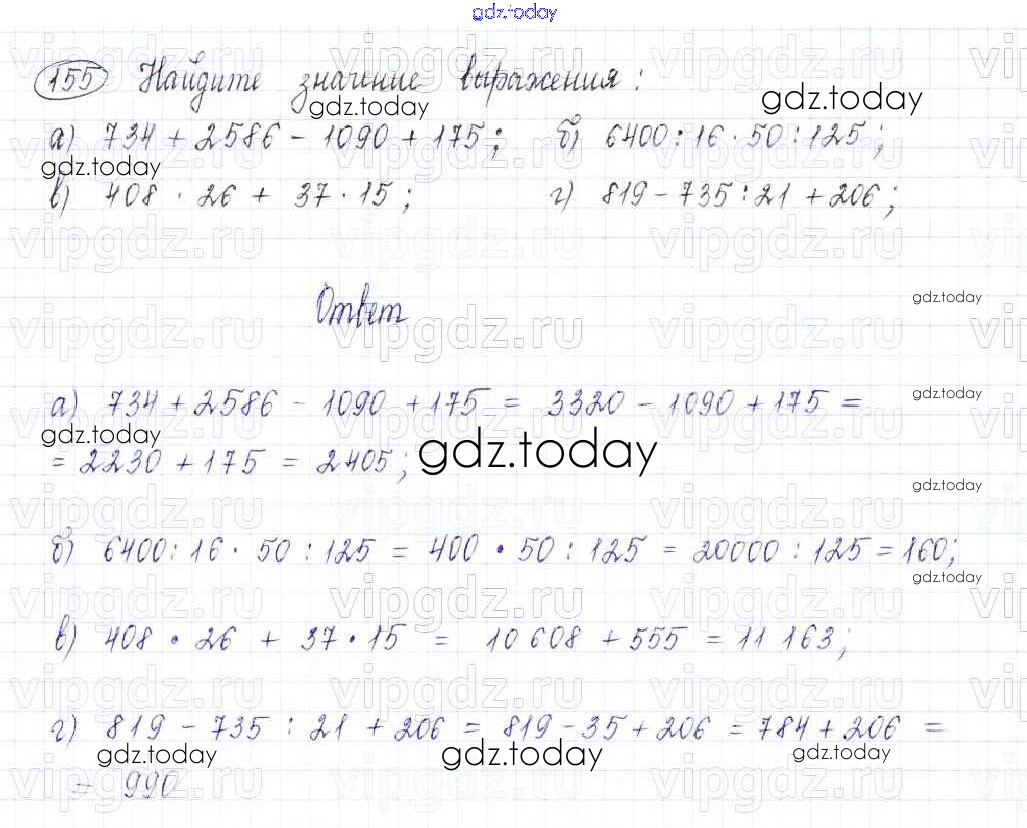 gdz.today
155 Найдите значение выражения:
gdz.today gdz.today
а) 734 + 2586 - 1090 + 175; б) 6400 : 16 · 50 : 125;
gdz.today
в) 408 · 26 + 37 · 15; г) 819 - 735 : 21 + 206;
Ответ
gdz.today
а) 734 + 2586 - 1090 + 175 = 3320 - 1090 + 175 =
gdz.today
gdz.today
= 2230 + 175 = 2405;
gdz.today
gdz.today
б) 6400 : 16 · 50 : 125 = 400 · 50 : 125 = 20000 : 125 = 160;
gdz.today
в) 408 · 26 + 37 · 15 = 10 608 + 555 = 11 163;
г) 819 - 735 : 21 + 206 = 819 - 35 + 206 = 784 + 206 =
gdz.today gdz.today gdz.today
= 990
vipgdz.ru